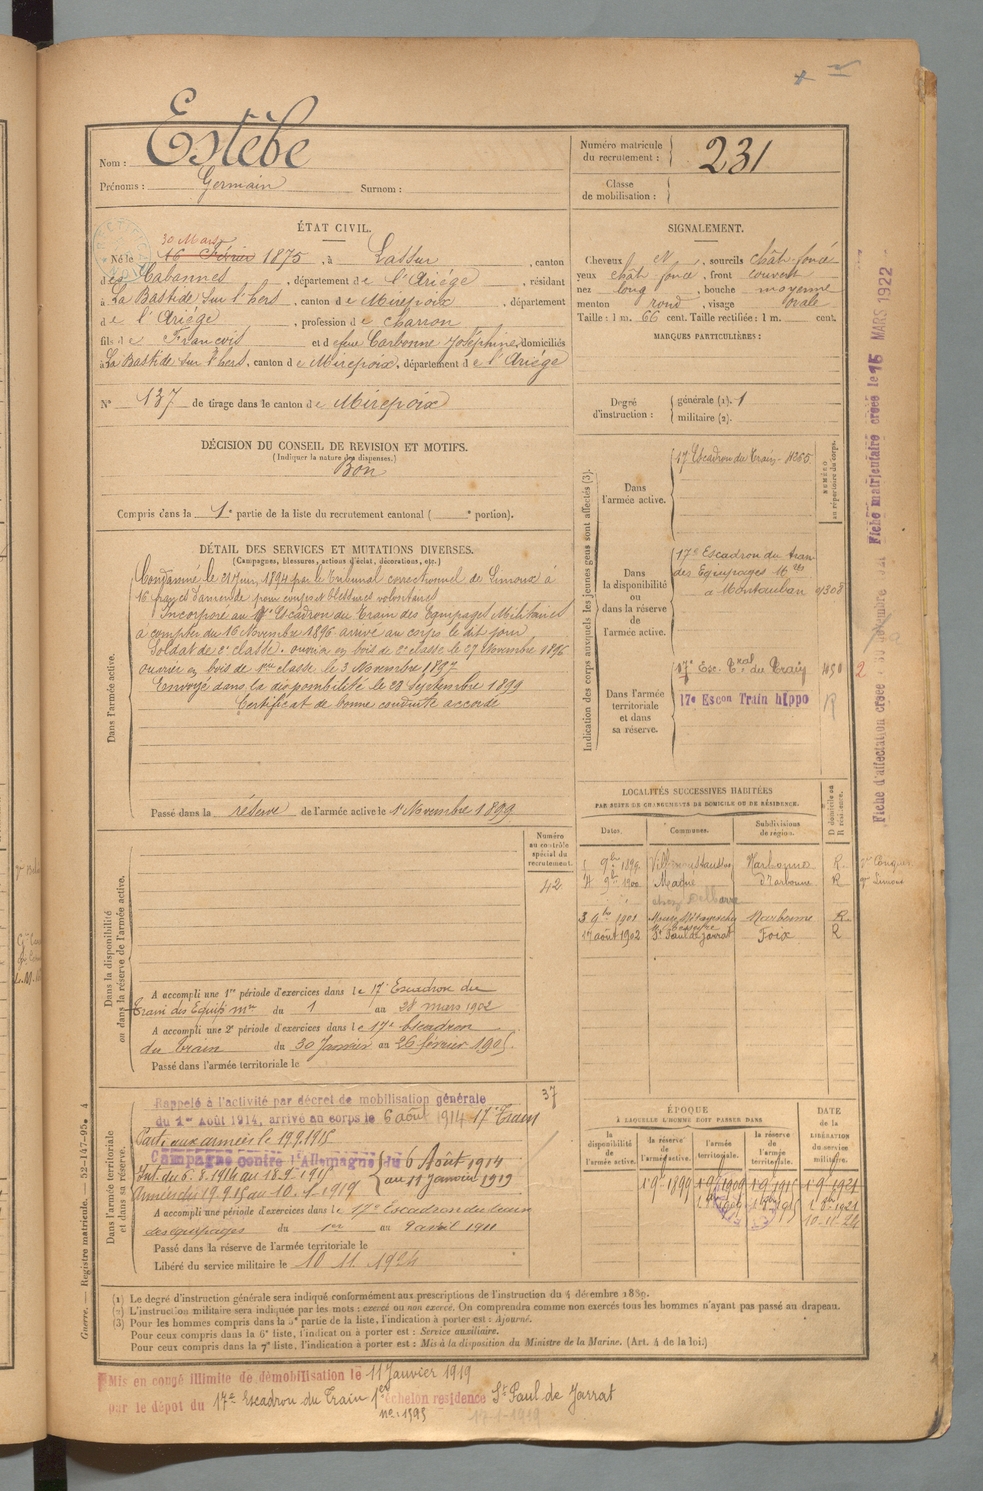 Estèbe
Nom :
Prénoms : Germain Surnom :
Numéro matricule du recrutement : 231
Classe de mobilisation :
ÉTAT CIVIL.
30 Mars
Né le 16 Février 1875, à Lassur, canton
des Cabannes, département de l'Ariége, résidant
à La Bastide sur l'hers, canton de Mirepoix, département
de l'Ariége, profession de Charron
fils de François et de feue Carbonne Joséphine, domiciliés
à La Bastide sur l'hers, canton de Mirepoix, département de l'Ariége
N° 137 de tirage dans le canton de Mirepoix
SIGNALEMENT.
Cheveux N, sourcils chât. foncé
yeux chât. foncé, front couvert
nez long, bouche moyenne
menton rond, visage ovale
Taille : 1 m. 66 cent. Taille rectifiée : 1 m. cent.
MARQUES PARTICULIÈRES :
Degré d'instruction : générale (1). 1
militaire (2).
DÉCISION DU CONSEIL DE REVISION ET MOTIFS.
(Indiquer la nature des dispenses.)
Bon
Compris dans la 1e partie de la liste du recrutement cantonal ( e portion).
DÉTAIL DES SERVICES ET MUTATIONS DIVERSES.
(Campagnes, blessures, actions d'éclat, décorations, etc.)
Dans l'armée active.
Condamné le 21 Juin 1894 par le Tribunal correctionnel de Limoux à
16 francs d'amende pour coups et blessures volontaires.
Incorporé au 17e Escadron du Train des Equipages Militaires
à compter du 16 Novembre 1896 arrivé au corps le dit jour
Soldat de 2e classe. ouvrier en bois de 2e classe le 27 Novembre 1896
ouvrier en bois de 1ere classe le 3 Novembre 1897
Envoyé dans la disponibilité le 28 Septembre 1899
Certificat de bonne conduite accordé
Passé dans la réserve de l'armée active le 1er Novembre 1899
Indication des corps auxquels les jeunes gens sont affectés (3).
NUMÉRO au répertoire du corps.
Dans l'armée active.
17e Escadron du Train - 1265
Dans la disponibilité ou dans la réserve de l'armée active.
17e Escadron du train
des Equipages Mres
à Montauban 4308
Dans l'armée territoriale et dans sa réserve.
17e Esc. Tral du Train 1050
17e Escon Train hippo R
2
Fiche matriculaire créée le 15 MARS 1922
LOCALITÉS SUCCESSIVES HABITÉES
PAR SUITE DE CHANGEMENTS DE DOMICILE OU DE RÉSIDENCE.
Dates. Communes. Subdivisions de région. D domicile ou R résidence.
9bre 1899 Narbonne R
9bre 1900 Narbonne R
3 9bre 1901 Narbonne R
17 août 1902 St Paul de Jarrat Foix R
Dans la disponibilité ou dans la réserve de l'armée active.
Numéro au contrôle spécial du recrutement.
42
A accompli une 1re période d'exercices dans le 17e Escadron du
Train des Equip. Mres du 1 au 28 mars 1902
A accompli une 2e période d'exercices dans le 17e Escadron
du train du 30 Janvier au 26 février 1905.
Passé dans l'armée territoriale le
Dans l'armée territoriale et dans sa réserve.
37
Rappelé à l'activité par décret de mobilisation générale
du 1er Août 1914, arrivé au corps le 6 août 1914 17e Train
Parti aux armées le 19.9.1915
Campagne contre l'Allemagne du 6 Août 1914
au 11 Janvier 1919
Int. du 6.8.1914 au 18.9.1915
Armées du 19.9.15 au 10.1.1919
A accompli une période d'exercices dans le 17e Escadron du train
des équipages du 1er au 9 avril 1911
Passé dans la réserve de l'armée territoriale le
Libéré du service militaire le 10 11 1924
ÉPOQUE
À LAQUELLE L'HOMME DOIT PASSER DANS
la disponibilité de l'armée active. la réserve de l'armée active. l'armée territoriale. la réserve de l'armée territoriale.
DATE DE LA LIBÉRATION du service militaire.
1 9bre 1899 1 9bre 1909 1 9bre 1915 1 9bre 1921
10-11-24
(1) Le degré d'instruction générale sera indiqué conformément aux prescriptions de l'instruction du 4 décembre 1889.
(2) L'instruction militaire sera indiquée par les mots : exercé ou non exercé. On comprendra comme non exercés tous les hommes n'ayant pas passé au drapeau.
(3) Pour les hommes compris dans la 5e partie de la liste, l'indication à porter est : Ajourné.
Pour ceux compris dans la 6e liste, l'indication à porter est : Service auxiliaire.
Pour ceux compris dans la 7e liste, l'indication à porter est : Mis à la disposition du Ministre de la Marine. (Art. 4 de la loi.)
Guerre. — Registre matricule. 52-147-95. 4
Mis en congé illimité de démobilisation le 11 Janvier 1919
par le dépot du 17e Escadron du Train 1er Echelon residence St Paul de Jarrat
ne. 1393
17-1-1919